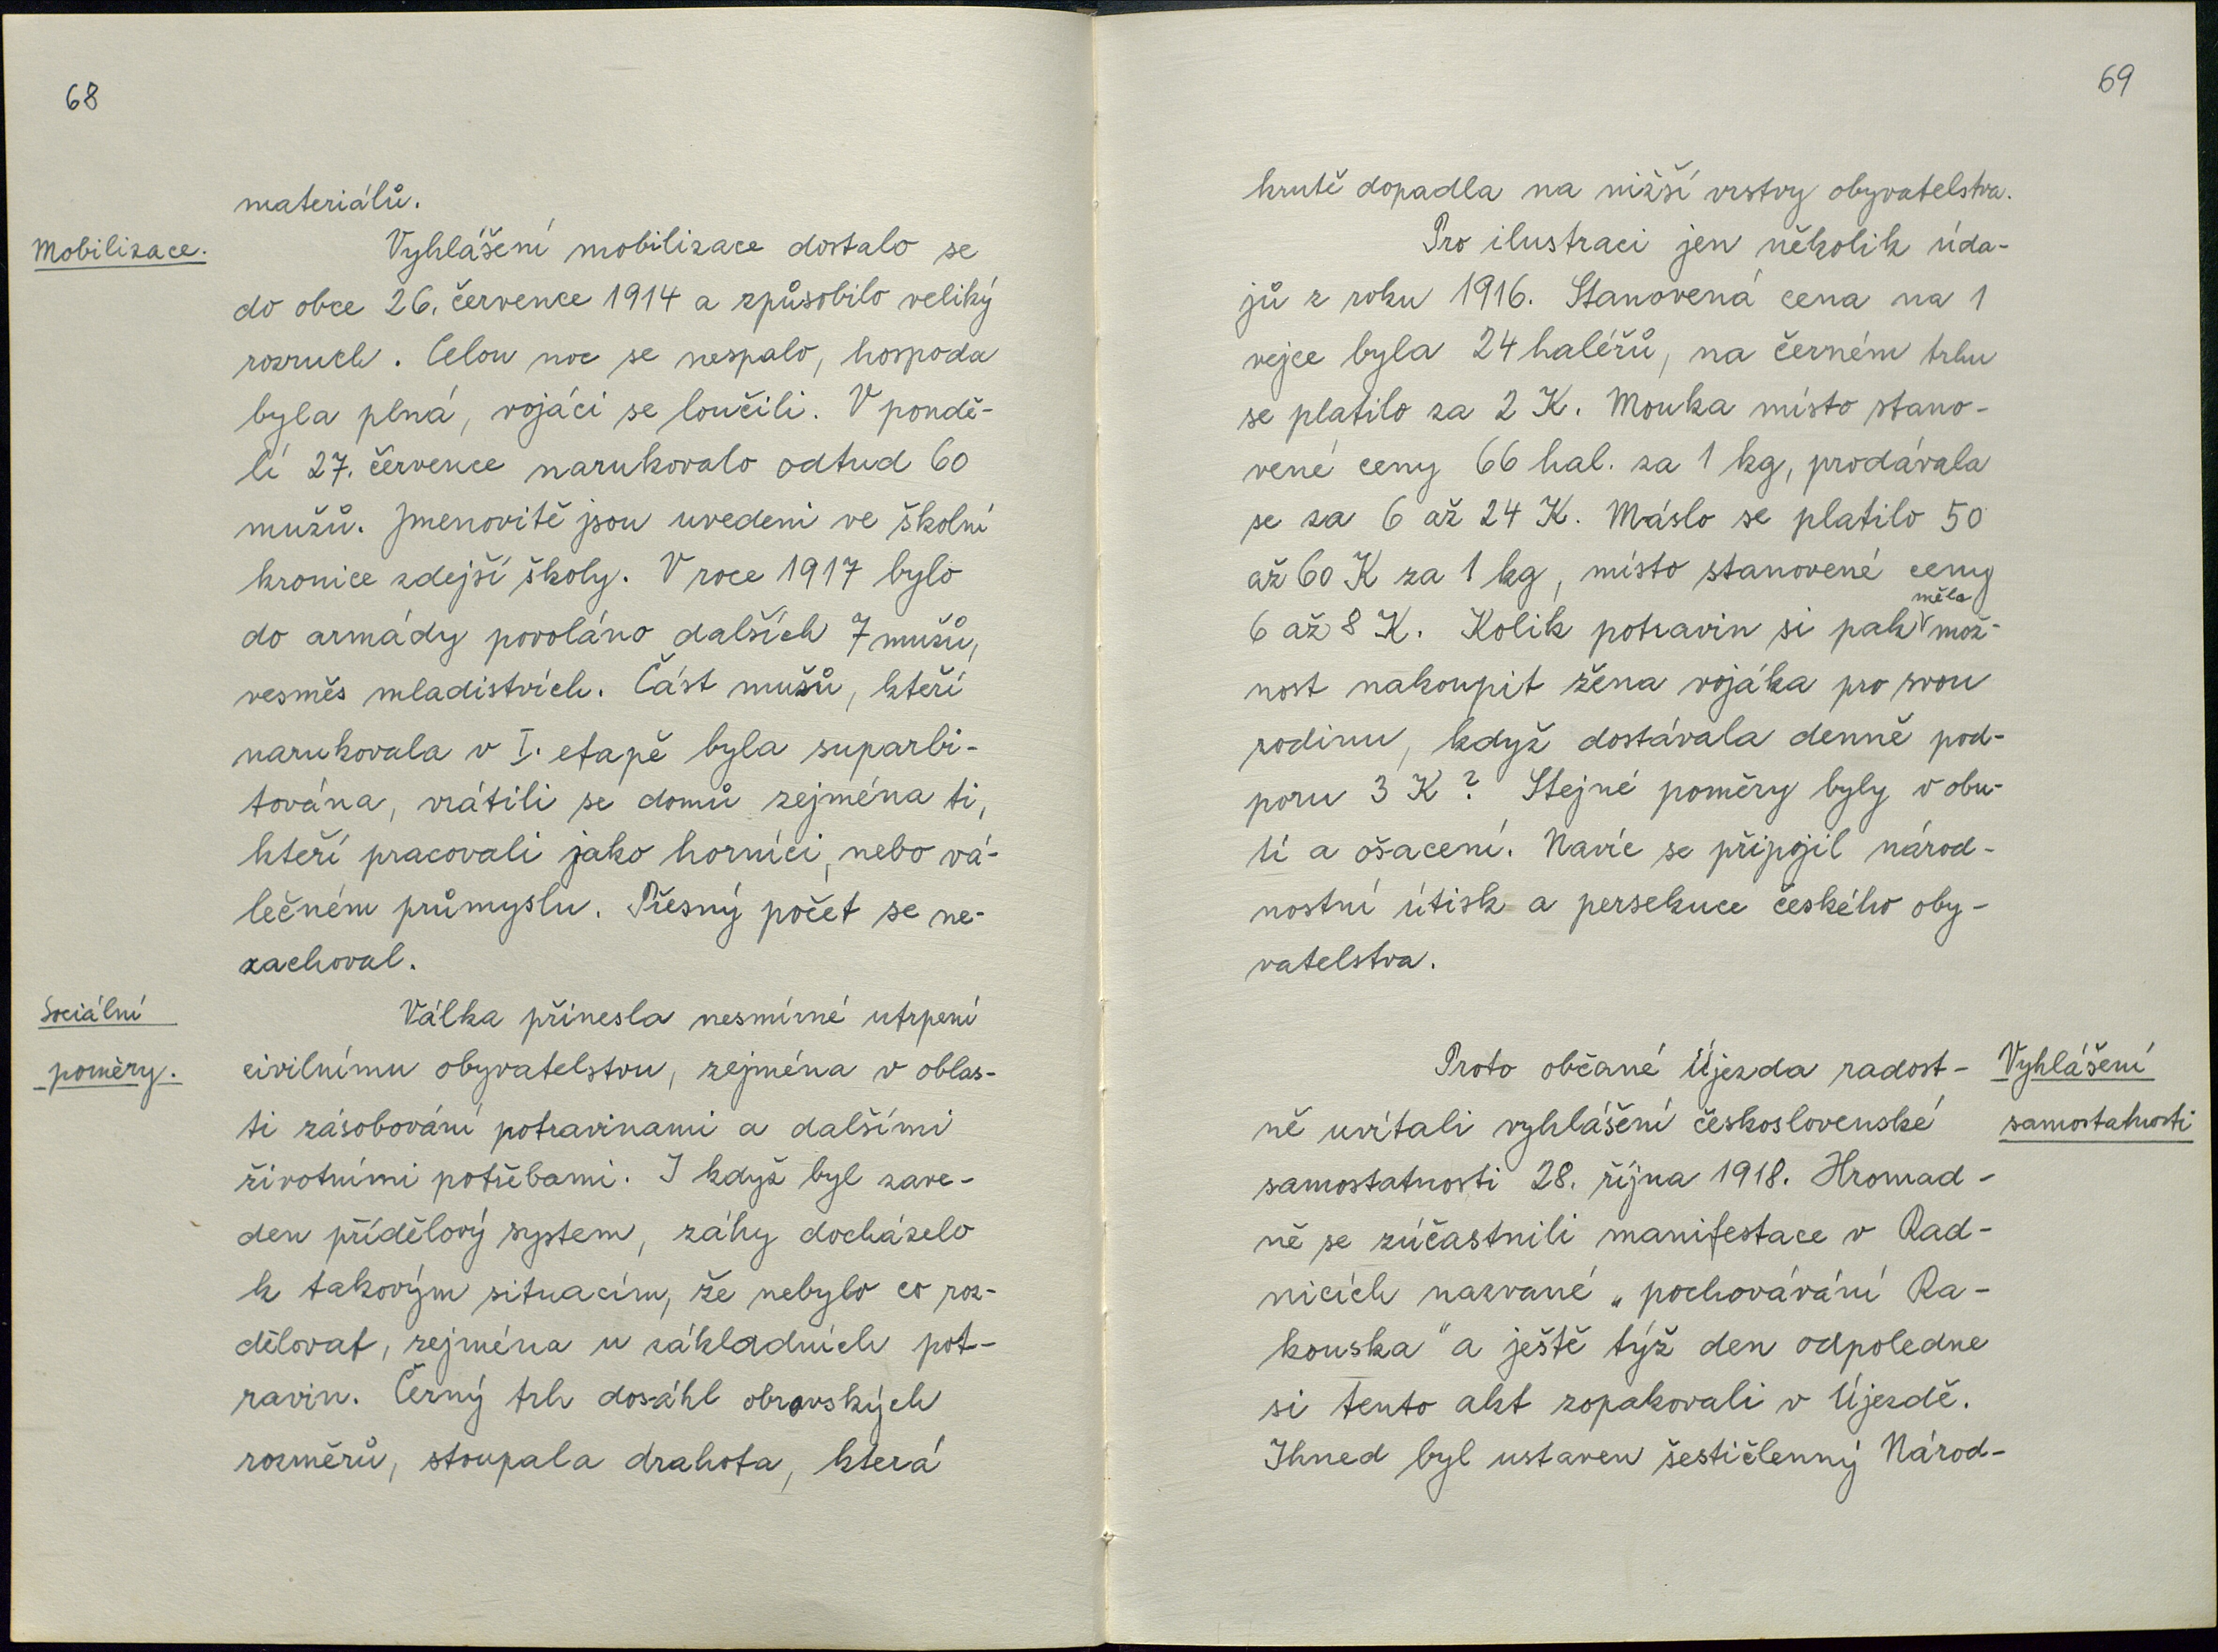 68
materiálů.
Mobilizace.
Vyhlášení mobilizace dostalo se
do obce 26. července 1914 a způsobilo veliký
rozruch. Celou noc se nespalo, hospoda
byla plná, vojáci se loučili. V pondě-
lí 27. července narukovalo odtud 60
mužů. Jmenovitě jsou uvedeni ve školní
kronice zdejší školy. V roce 1917 bylo
do armády povoláno dalších 7 mužů,
vesměs mladistvích. Část mužů, kteří
narukovala v I. etapě byla suparbi-
tována, vrátili se domů zejména ti,
kteří pracovali jako horníci, nebo vá-
lečném průmyslu. Přesný počet se ne-
zachoval.
Sociální
poměry.
Válka přinesla nesmírné utrpení
civilnímu obyvatelstvu, zejména v oblas-
ti zásobování potravinami a dalšími
životními potřebami. I když byl zave-
den přídělový system, záhy docházelo
k takovým situacím, že nebylo co roz-
dělovat, zejména u základních pot-
ravin. Černý trh dosáhl obrovských
rozměrů, stoupala drahota, která
69
krutě dopadla na nižší vrstvy obyvatelstva.
Pro ilustraci jen několik úda-
jů z roku 1916. Stanovená cena na 1
vejce byla 24 haléřů, na černém trhu
se platilo za 2 K. Mouka místo stano-
vené ceny 66 hal. za 1 kg, prodávala
se za 6 až 24 K. Máslo se platilo 50
až 60 K za 1 kg, místo stanovené ceny
6 až 8 K. Kolik potravin si pak měla mož-
nost nakoupit žena vojáka pro svou
rodinu, když dostávala denně pod-
poru 3 K? Stejné poměry byly v obu-
tí a ošacení. Navíc se připojil národ-
nostní útisk a persekuce českého oby-
vatelstva.
Proto občané Újezda radost-
Vyhlášení
samostatnosti
ně uvítali vyhlášení československé
samostatnosti 28. října 1918. Hromad-
ně se zúčastnili manifestace v Rad-
nicích nazvané „pochovávání Ra-
kouska" a ještě týž den odpoledne
si tento akt zopakovali v Újezdě.
Ihned byl ustaven šestičlenný Národ-